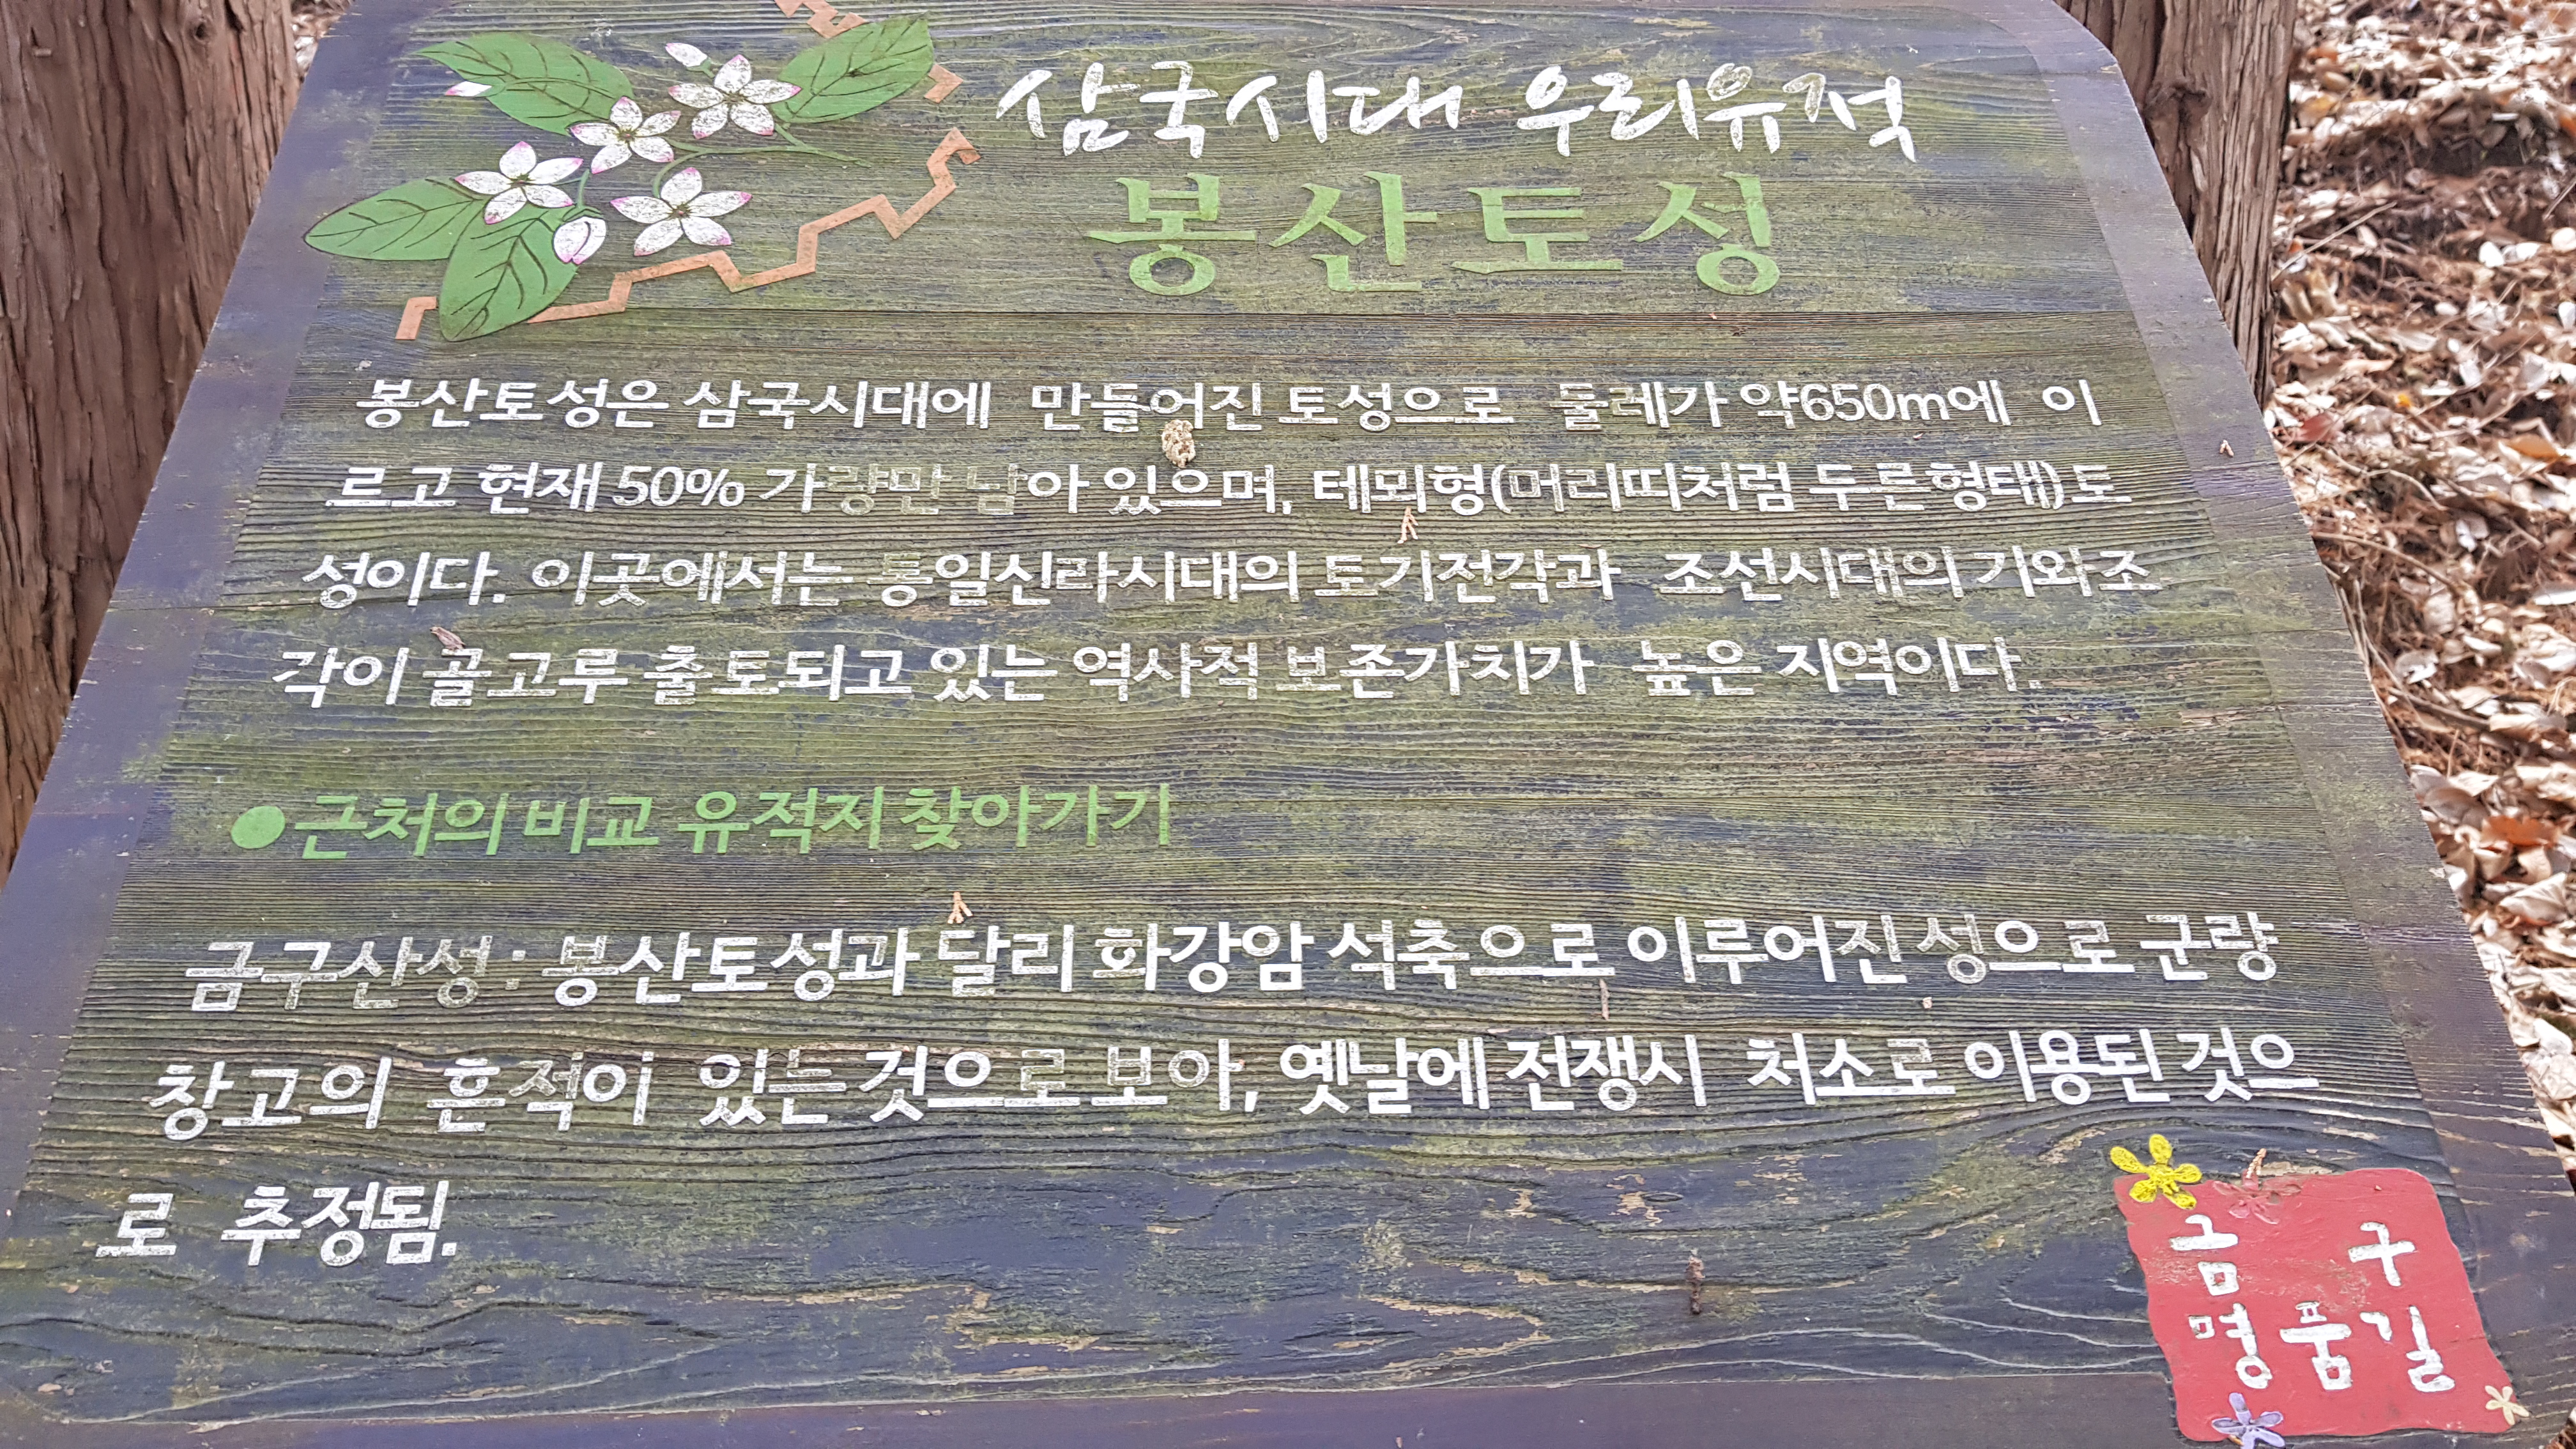 삼국시대 우리유적
봉산토성
봉산토성은 삼국시대에 만들어진 토성으로 둘레가 약650m에 이
르고 현재 50% 가량만 남아 있으며, 테뫼형(머리띠처럼 두른형태)도
성이다. 이곳에서는 통일신라시대의 토기전각과 조선시대의 기와조
각이 골고루 출토되고 있는 역사적 보존가치가 높은 지역이다.
●근처의 비교 유적지 찾아가기
금구산성 : 봉산토성과 달리 화강암 석축으로 이루어진 성으로 군량
창고의 흔적이 있는 것으로 보아, 옛날에 전쟁시 처소로 이용된 것으
로 추정됨.
금구
명품길